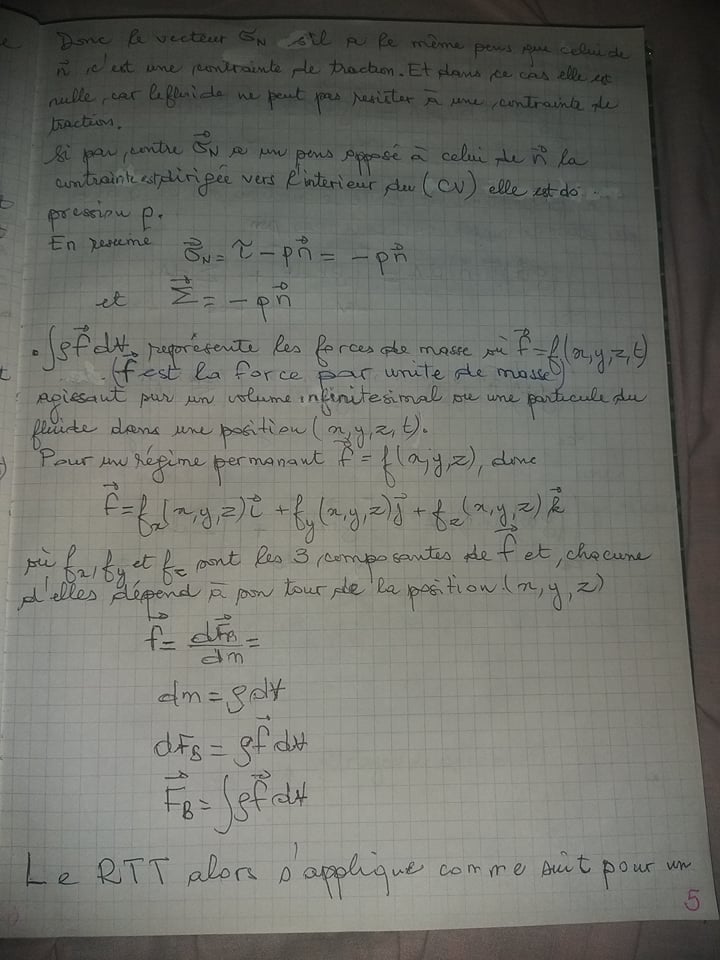 Donc le vecteur σ⃗N s'il a le même sens que celui de
n⃗ c'est une contrainte de traction. Et dans ce cas elle est
nulle, car le fluide ne peut pas resister à une contrainte de
traction.
Si par contre σ⃗N a un sens opposé à celui de n⃗ la
contrainte est dirigée vers l'interieur du (CV) elle est do
pression p.
En resumé σ⃗N = τ - pn⃗ = - pn⃗
et Σ⃗ = - pn⃗
• ∫ρf⃗ dV represente les forces de masse où f⃗ = f(x,y,z,t)
(f⃗ est la force par unite de masse)
agissant sur un volume infinitesimal ou une particule du
fluide dans une position (x,y,z,t).
Pour un régime permanant f⃗ = f(x,y,z), donc
f⃗ = fx(x,y,z)i⃗ + fy(x,y,z)j⃗ + fz(x,y,z)k⃗
où fx, fy et fz sont les 3 composantes de f⃗ et, chacune
d'elles dépend à son tour de la position (x,y,z)
f⃗ = dF⃗B/dm =
dm = ρdV
dFB = ρf⃗ dV
F⃗B = ∫ρf⃗ dV
Le RTT alors s'applique comme suit pour un
5